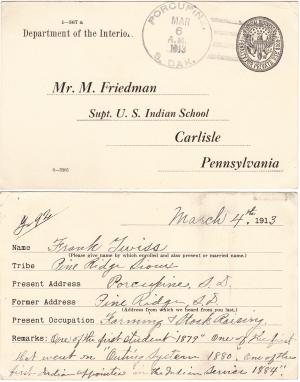 5—867 a
Department of the Interio
PORCUPINE
MAR
6
A.M.
1913
S. DAK.
Mr. M. Friedman
Supt. U. S. Indian School
Carlisle
Pennsylvania
March 4th, 1913
Name Frank Twiss
(Please give name by which enrolled and also present or married name.)
Tribe Pine Ridge Sioux
Present Address Porcupine, S.D.
Former Address Pine Ridge, S.D.
(Address from which we heard from you last.)
Present Occupation Farming & Stock Raising
Remarks: One of the first Student 1879" One of the first
that went on "Outing System" 1880, one of the
first Indian appointee in the Indian Service 1884"